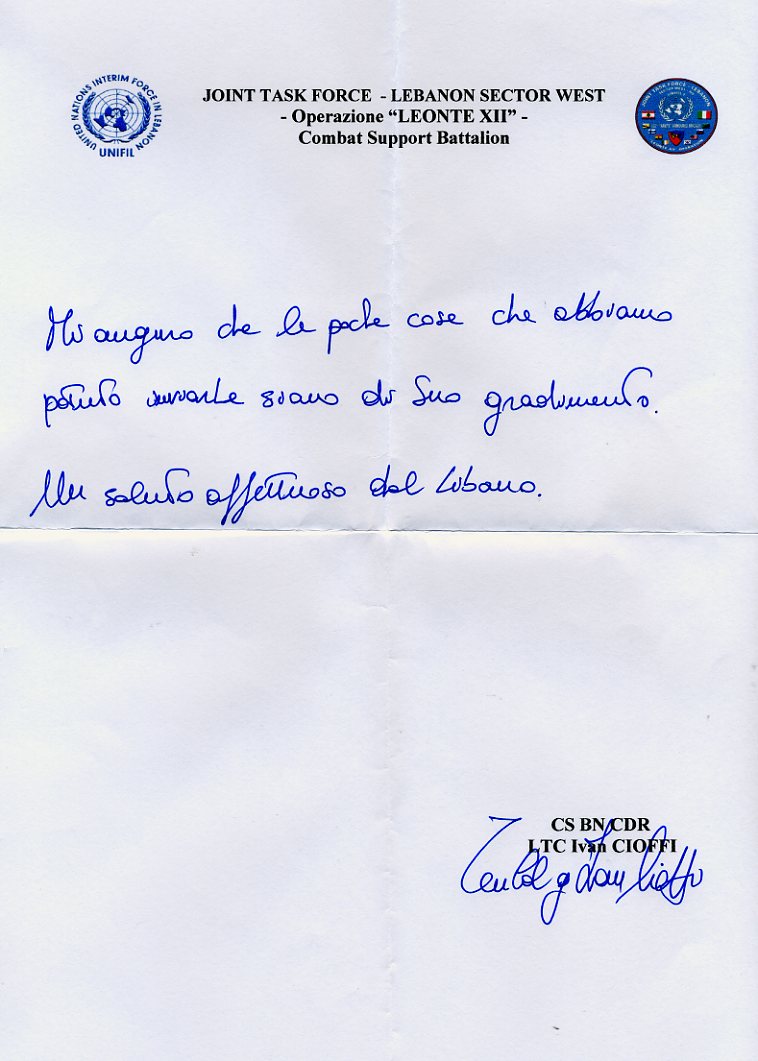 UNITED NATIONS INTERIM FORCE IN LEBANON
UNIFIL
JOINT TASK FORCE - LEBANON SECTOR WEST
- Operazione “LEONTE XII” -
Combat Support Battalion
JOINT TASK FORCE - LEBANON
Mi auguro che le poche cose che abbiamo
potuto inviarLe siano di Suo gradimento.
Un saluto affettuoso dal Libano.
CS BN CDR
LTC Ivan CIOFFI
Ten Col g Ivan Cioffi